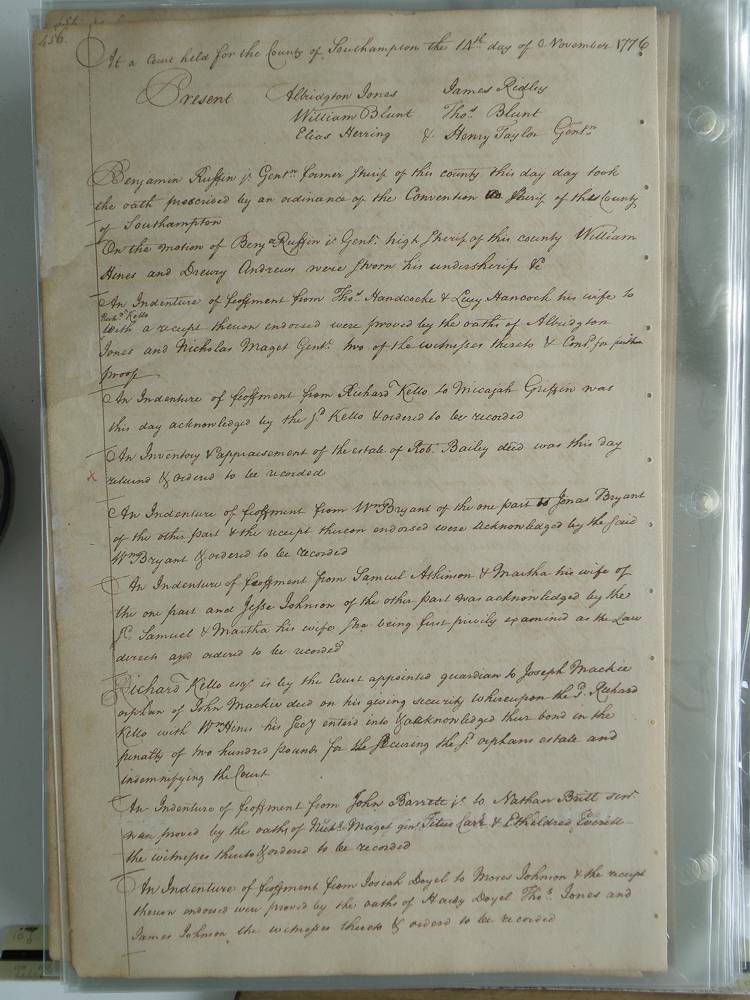 456
At a Court held for the County of Southampton the 14th day of November 1776
Present Albridgton Jones James Ridley
William Blunt Thos. Blunt
Elias Herring & Henry Taylor Gentn
Benjamin Ruffin jr. Gentn. former Sherif of this county this day day took
the oath prescribed by an ordinance of the Convention Sherif of this County
of Southampton
On the motion of Benja Ruffin jr. Gent. high Sherif of this county William
Hines and Drewry Andrews were sworn his undersherifs &c
An Indenture of feoffment from Thos. Handcocke & Lucy Hancock his wife to
Richd. Kello
with a receipt theron endorsed were proved by the oaths of Albridgton
Jones and Nicholas Maget Gent. two of the witnesses thereto & Contd. for further
proof
An Indenture of feoffment from Richard Kello to Micajah Griffin was
this day acknowledged by the sd. Kello & ordered to be recorded
An Inventory & appraisement of the estate of Rob. Bailey decd was this day
x returnd & ordered to be recorded
An Indenture of feoffment from Wm Bryant of the one part to Jonas Bryant
of the other part & the receipt thereon endorsed were acknowledged by the said
Wm Bryant & ordered to be recorded
An Indenture of feoffment from Samuel Atkinson & Martha his wife of
the one part and Jesse Johnson of the other part was acknowledged by the
sd. Samuel & Martha his wife she being first privily examined as the Law
directs and ordered to be recorded
Richard Kello esqr. is by the Court appointed guardian to Joseph Mackie
orphan of John Mackie decd on his giving security whereupon the sd. Richard
Kello with Wm Hines his secy enterd into & acknowledged their bond in the
penalty of two hundred pounds for the securing the sd. orphans estate and
indemnifying the Court
An Indenture of feoffment from John Barrett jr. to Nathan Britt senr.
was proved by the oaths of Nichs. Maget gent. Titus Carr & Etheldred Everett
the witnesses thereto & ordered to be recorded
An Indenture of feoffment from Josiah Doyel to Moses Johnson & the receipt
theron endorsed were proved by the oaths of Hardy Doyel Thos. Jones and
James Johnson the witnesses thereto & orderd to be recorded